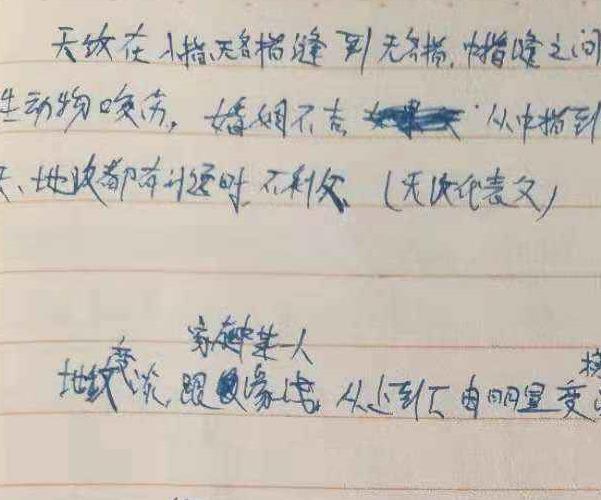 天纹在小指、无名指缝到无名指、中指缝之间
生动物咬伤，婚姻不吉 从中指到
天、地纹都有问题时，不利父、(天纹代表父)
家庭中某一人
地纹变淡，跟 缘浅，从上到下由明显变